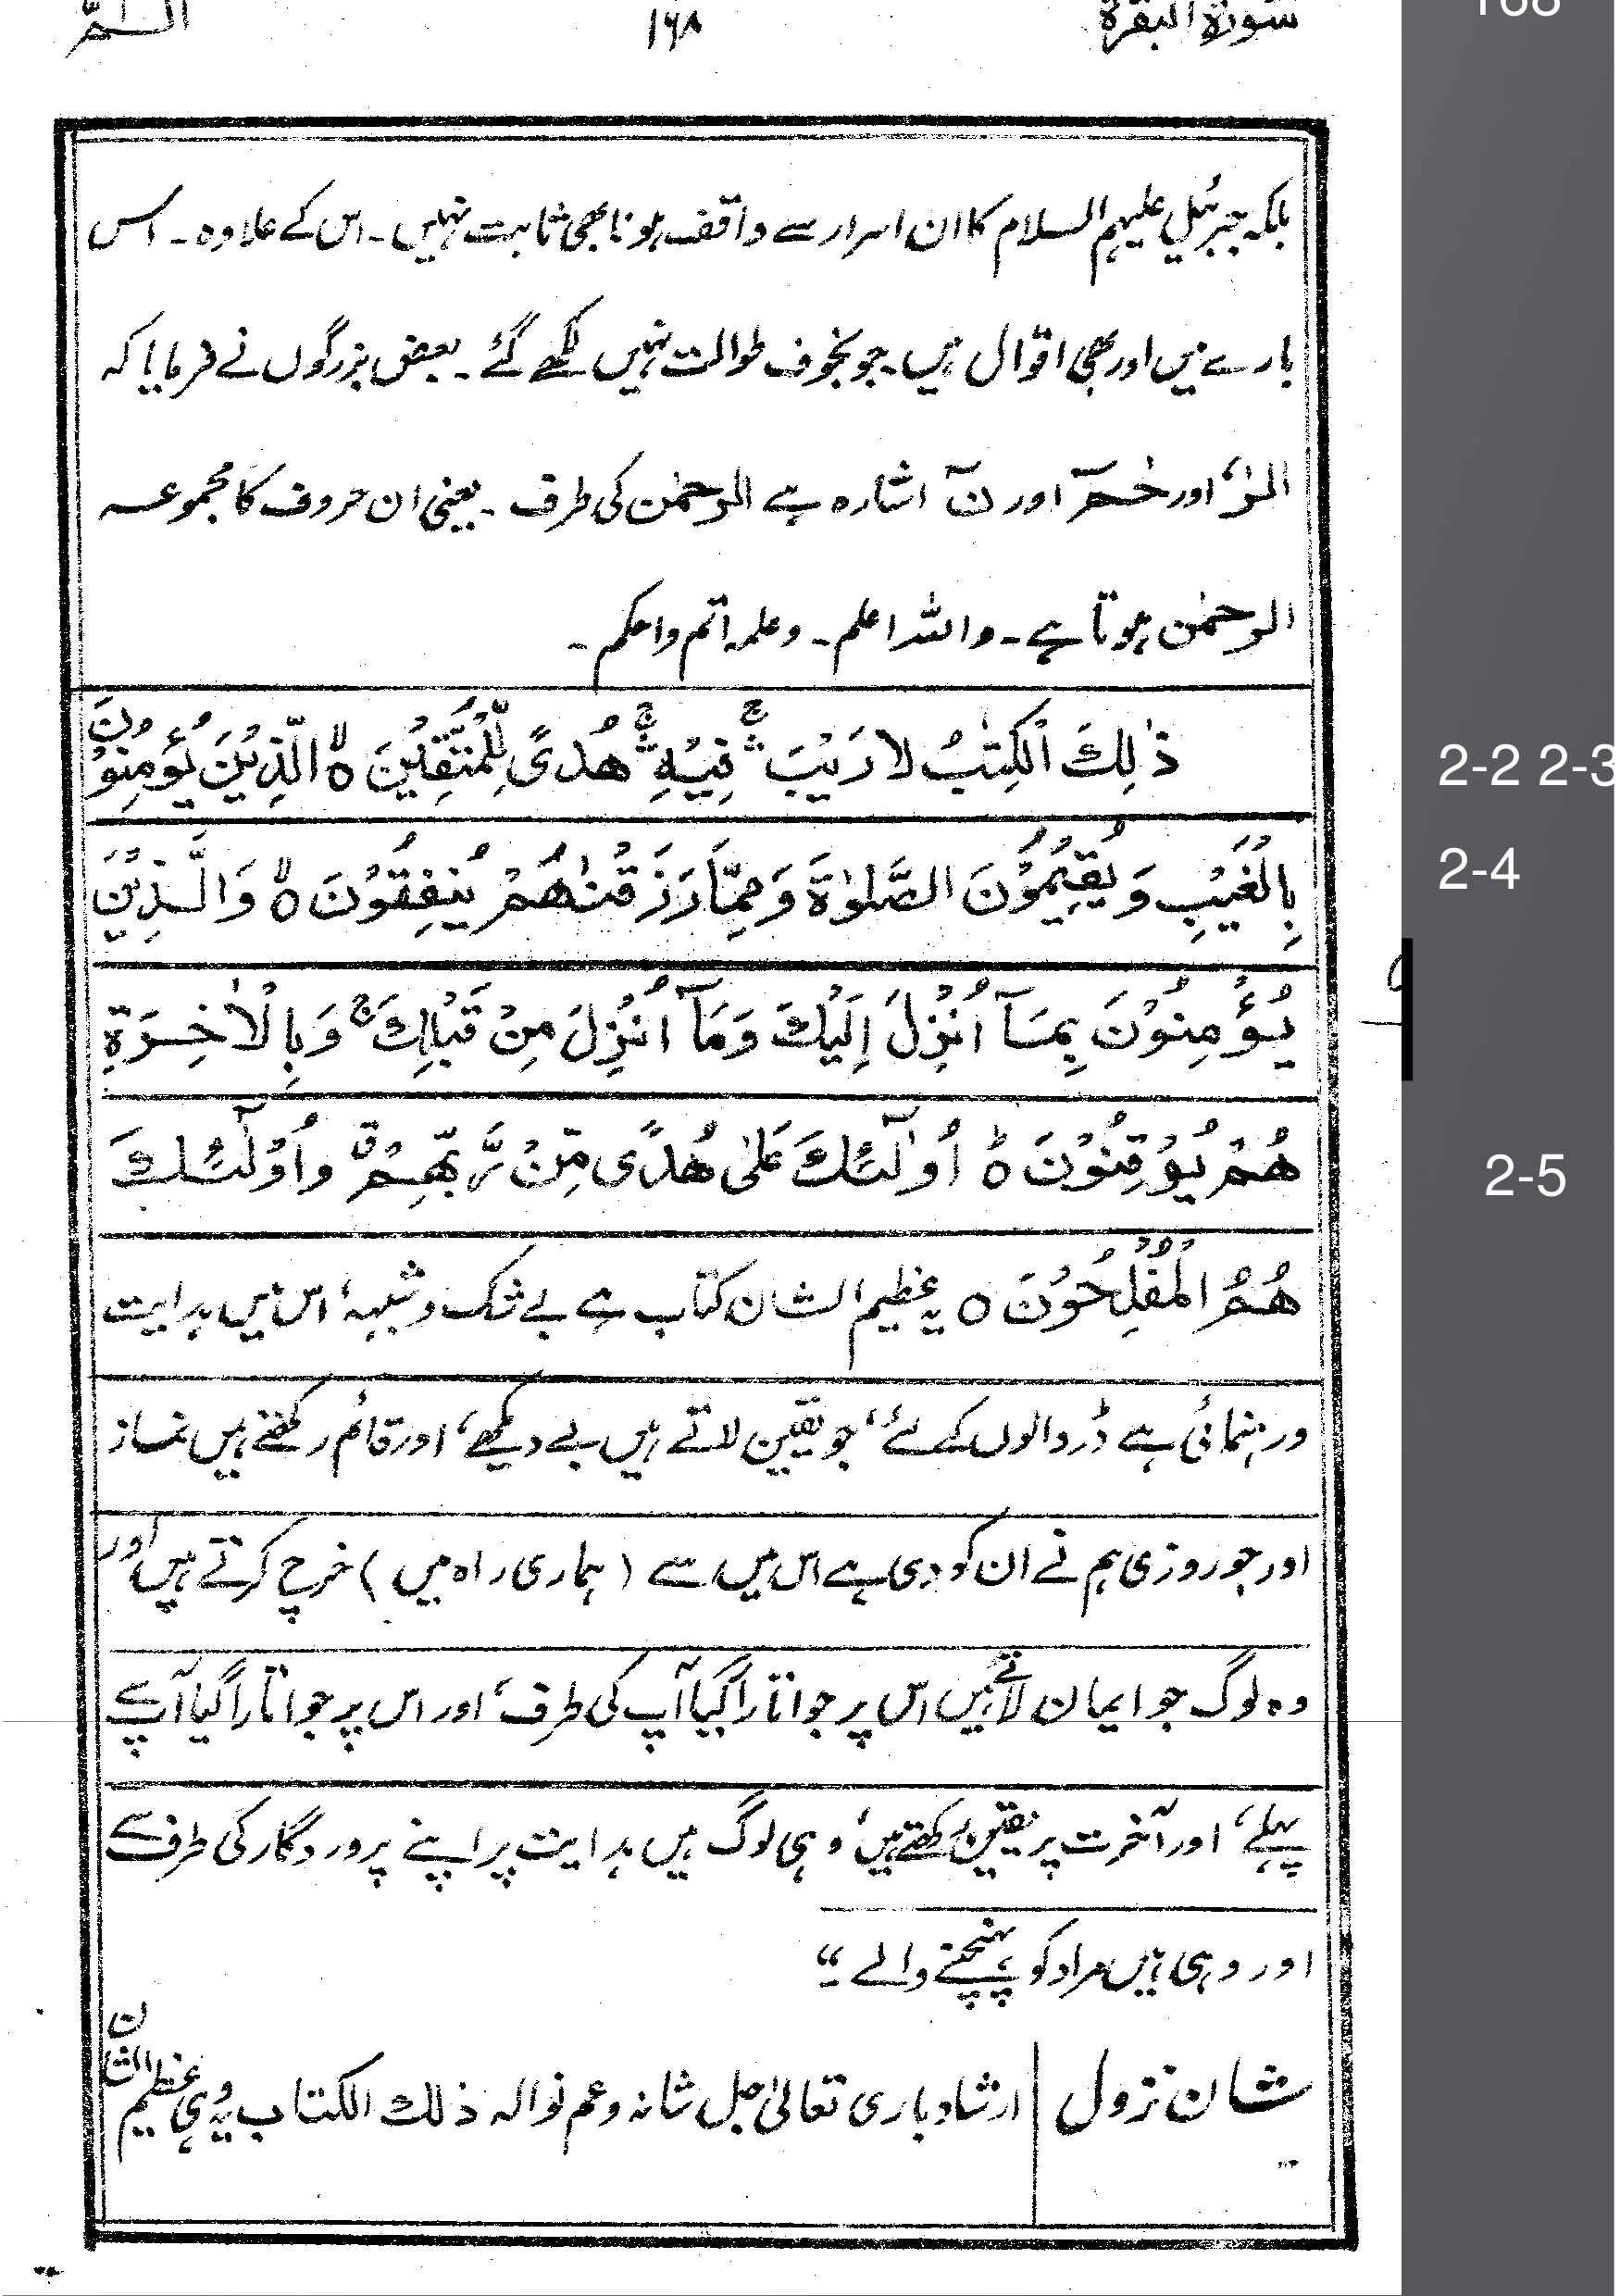 سورۃ البقرۃ ۱۶۸ الٓـمّٓ
168
بلکہ جبرئیل علیہم السلام کا ان اسرار سے واقف ہونا بھی ثابت نہیں ۔ اس کے علاوہ ۔ اس
بارے میں اور بھی اقوال ہیں ۔ جو بخوف طوالت نہیں لکھے گئے ۔ بعض بزرگوں نے فرمایا کہ
الٓرٰ، اور حٰـمٓ اور نٓ اشارہ ہے الرحمٰن کی طرف ۔ یعنی ان حروف کا مجموعہ
الرحمٰن ہوتا ہے ۔ واللہ اعلم ۔ وعلمہ اتم واحکم ۔
ذٰلِكَ الْكِتٰبُ لَا رَيْبَ ۛۚ فِيْهِ ۛۚ هُدًى لِّلْمُتَّقِيْنَ ۙ‏ الَّذِيْنَ يُؤْمِنُوْنَ
2-2 2-3
بِالْغَيْبِ وَيُقِيْمُوْنَ الصَّلٰوةَ وَمِمَّا رَزَقْنٰهُمْ يُنْفِقُوْنَ ۙ وَالَّذِيْنَ
2-4
يُؤْمِنُوْنَ بِمَآ اُنْزِلَ اِلَيْكَ وَمَآ اُنْزِلَ مِنْ قَبْلِكَ ۚ وَبِالْاٰخِرَةِ
هُمْ يُوْقِنُوْنَ ؕ اُولٰٓئِكَ عَلٰى هُدًى مِّنْ رَّبِّهِمْ ۗ وَاُولٰٓئِكَ
2-5
هُمُ الْمُفْلِحُوْنَ ○ یہ عظیم الشان کتاب ہے بے شک وشبہ، اس میں ہدایت
ورہنمائی ہے ڈر والوں کے لئے، جو یقین لاتے ہیں بے دیکھے، اور قائم رکھتے ہیں نماز
اور جو روزی ہم نے ان کو دی ہے اس میں سے ( ہماری راہ میں ) خرچ کرتے ہیں اور
وہ لوگ جو ایمان لاتے ہیں اس پر جو اتارا گیا آپ کی طرف، اور اس پر جو اتارا گیا آپ سے
پہلے، اور آخرت پر یقین رکھتے ہیں، وہی لوگ ہیں ہدایت پر اپنے پروردگار کی طرف سے
اور وہی ہیں مراد کو پہنچنے والے ۔“
شان نزول ارشاد باری تعالیٰ جل شانہ وعم نوالہ ذلك الكتاب یہ وہی عظیم الشان